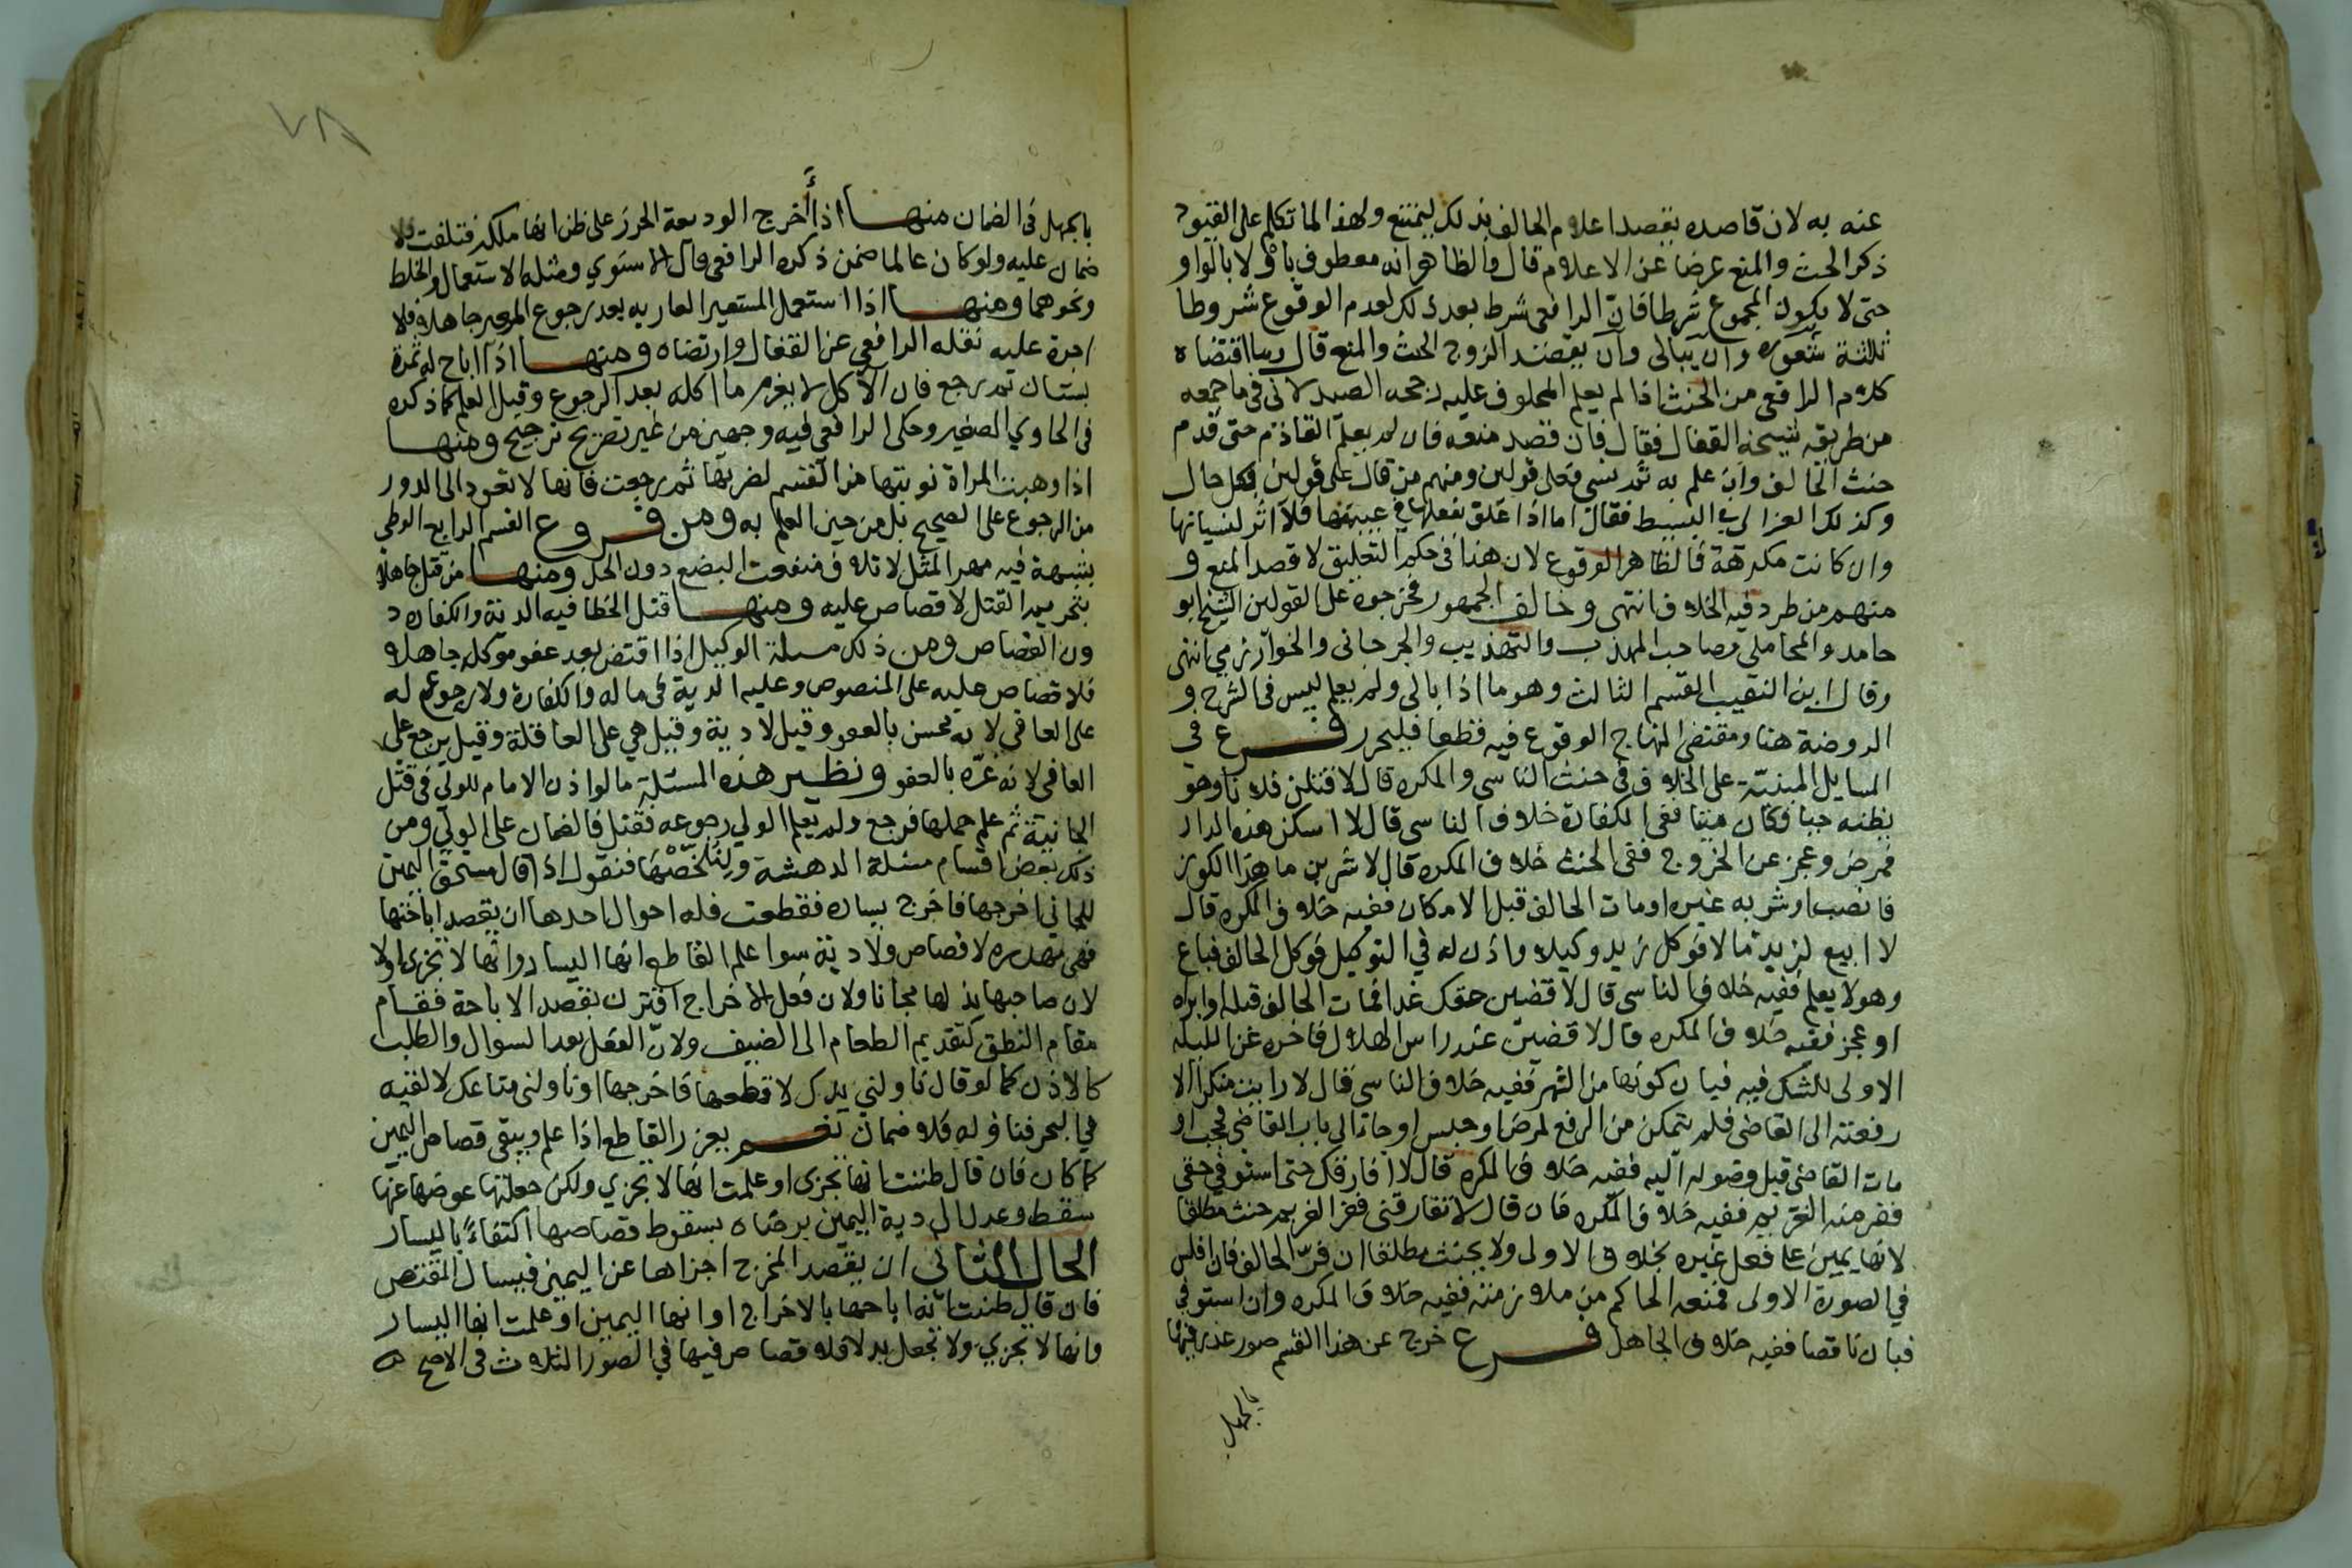 عنه به لان قاصده يقصد اعلام الحالف بذلك ليمتنع ولهذا لما تكلم على القيود
ذكر الحث والمنع عرضا عن الاعلام قال والظاهر انه معطوف باو لا بالواو
حتى لا يكون المجموع شرطا فان الرافعي شرط بعد ذلك لعدم الوقوع شروطا
ثلثة شعوره وان يبالي وان يقصد الزوج الحث والمنع قال وما اقتضاه
كلام الرافعي من الحنث اذا لم يعلم المحلوف عليه رجحه الصيدلاني في ما جمعه
من طريقه شيخه القفال فقال فان قصد منعه فان لم يعلم القادم حتى قدم
حنث الحالف وان علم به ثم نسي فعلى قولين ومنهم من قال على قولين بكل حال
وكذلك الغزالي في البسيط فقال اما اذا علق بفعلها في غيبتها فلا اثر لنسيانها
وان كانت مكرهة فالظاهر الوقوع لان هذا في حكم التعليق لا قصد المنع و
منهم من طرد فيه الخلاف انتهى وخالف الجمهور فخرجوه على القولين الشيخ ابو
حامد والمحاملي وصاحب المهذب والتهذيب والجرجاني والخوارزمي انتهى
وقال ابن النقيب القسم الثالث وهو ما اذا بالى ولم يعلم ليس في الشرح و
الروضة هنا ومقتضى المنهاج الوقوع فيه قطعا فليحرر فرع في
المسايل المبنية على الخلاف في حنث الناسي والمكره قال لاقتلن فلانا وهو
يظنه حيا فكان ميتا ففي الكفارة خلاف الناسي قال لا اسكن هذه الدار
فمرض وعجز عن الخروج ففي الحنث خلاف المكره قال لاشربن ما هذا الكوز
فانصب او شربه غيره او مات الحالف قبل الامكان ففيه خلاف المكره قال
لا ابيع لزيد مالا فوكل زيد وكيلا واذن له في التوكيل فوكل الحالف فباع
وهو لا يعلم ففيه خلاف الناسي قال لاقضين حقك غدا فمات الحالف قبله او ابراه
او عجز ففيه خلاف المكره قال لاقضين عند راس الهلال فاخره عن الليلة
الاولى للشك فيه فبان كونها من الشهر ففيه خلاف الناسي قال لا رايت منكرا الا
رفعته الى القاضي فلم يتمكن من الرفع لمرض او حبس او جاء الى باب القاضي فحجب او
مات القاضي قبل وصوله اليه ففيه خلاف المكره قال لا افارقك حتى استوفي حقي
ففر منه الغريم ففيه خلاف المكره فان قال لا تفارقني ففر الغريم حنث مطلقا
لانها يمين على فعل غيره بخلاف الاولى ولا يحنث مطلقا ان فر الحالف فان افلس
في الصورة الاولى فمنعه الحاكم من ملازمته ففيه خلاف المكره وان استوفى
فبان ناقصا ففيه خلاف الجاهل فرع خرج عن هذا القسم صور عذر فيها
بالجهل
٧٨
بالجهل في الضمان منها اذا أخرج الوديعة الحرز على ظن انها ملكه فتلفت فلا
ضمان عليه ولو كان عالما ضمن ذكره الرافعي قال الاسنوي ومثله الاستعمال والخلط
ونحوهما ومنها اذا استعمل المستعير العارية بعد رجوع المعير جاهلا فلا
اجرة عليه نقله الرافعي عن القفال وارتضاه ومنها اذا اباح له ثمرة
بستان ثم رجع فان الآكل لا يغرم ما اكله بعد الرجوع وقبل العلم كما ذكره
في الحاوي الصغير وحكى الرافعي فيه وجهين من غير تصريح ترجيح ومنها
اذا وهبت المراة نوبتها من القسم لضرتها ثم رجعت فانها لا تعود الى الدور
من الرجوع على الصحيح بل من حين العلم به ومن فروع القسم الرابع الوطي
بشبهة فيه مهر المثل لاتلاف منفعت البضع دون الحد ومنها من قتل جاهلا
بتحريم القتل لا قصاص عليه ومنها قتل الخطا فيه الدية والكفارة د
ون القصاص ومن ذلك مسلة الوكيل اذا اقتض بعد عفو موكله جاهلا و
فلا قصاص عليه على المنصوص وعليه الدية في ماله والكفارة ولا رجوع له
على العافي لانه محسن بالعفو وقيل لا دية وقيل هي على العاقلة وقيل يرجع على
العافي لانه غره بالعفو ونظير هذه المسئلة ما لو اذن الامام للولي في قتل
الجانية ثم علم حملها فرجع ولم يعلم الولي رجوعه فقتل فالضمان على الولي ومن
ذلك بعض اقسام مسئلة الدهشة ولنلخصها فنقول اذا قال مستحق اليمين
للجاني اخرجها فاخرج يساره فقطعت فله احوال احدها ان يقصد اباحتها
فهي مهدره لا قصاص ولا دية سوا علم القاطع انها اليسار وانها لا تجزي اولا
لان صاحبها بذلها مجانا ولان فعل الاخراج اقترن بقصد الاباحة فقام
مقام النطق كتقديم الطعام الى الضيف ولان الفعل بعد السوال والطلب
كالاذن كما لو قال ناولني يدك لاقطعها فاخرجها او ناولني متاعك لالقيه
في البحر فناوله فلا ضمان نعم يعزر القاطع اذا علم ويبقى قصاص اليمين
كما كان فان قال ظننت انها تجزي او علمت انها لا تجزي ولكن جعلتها عوضا عنها
سقط وعدل الى دية اليمين برضاه بسقوط قصاصها اكتفاءً باليسار
الحال الثاني ان يقصد المخرج اجزاها عن اليمين فيسال المقتص
فان قال ظننت انه اباحها بالاخراج او انها اليمين او علمت انها اليسار
وانها لا تجزي ولا تجعل بدلا فلا قصاص فيها في الصور الثلاث في الاصح